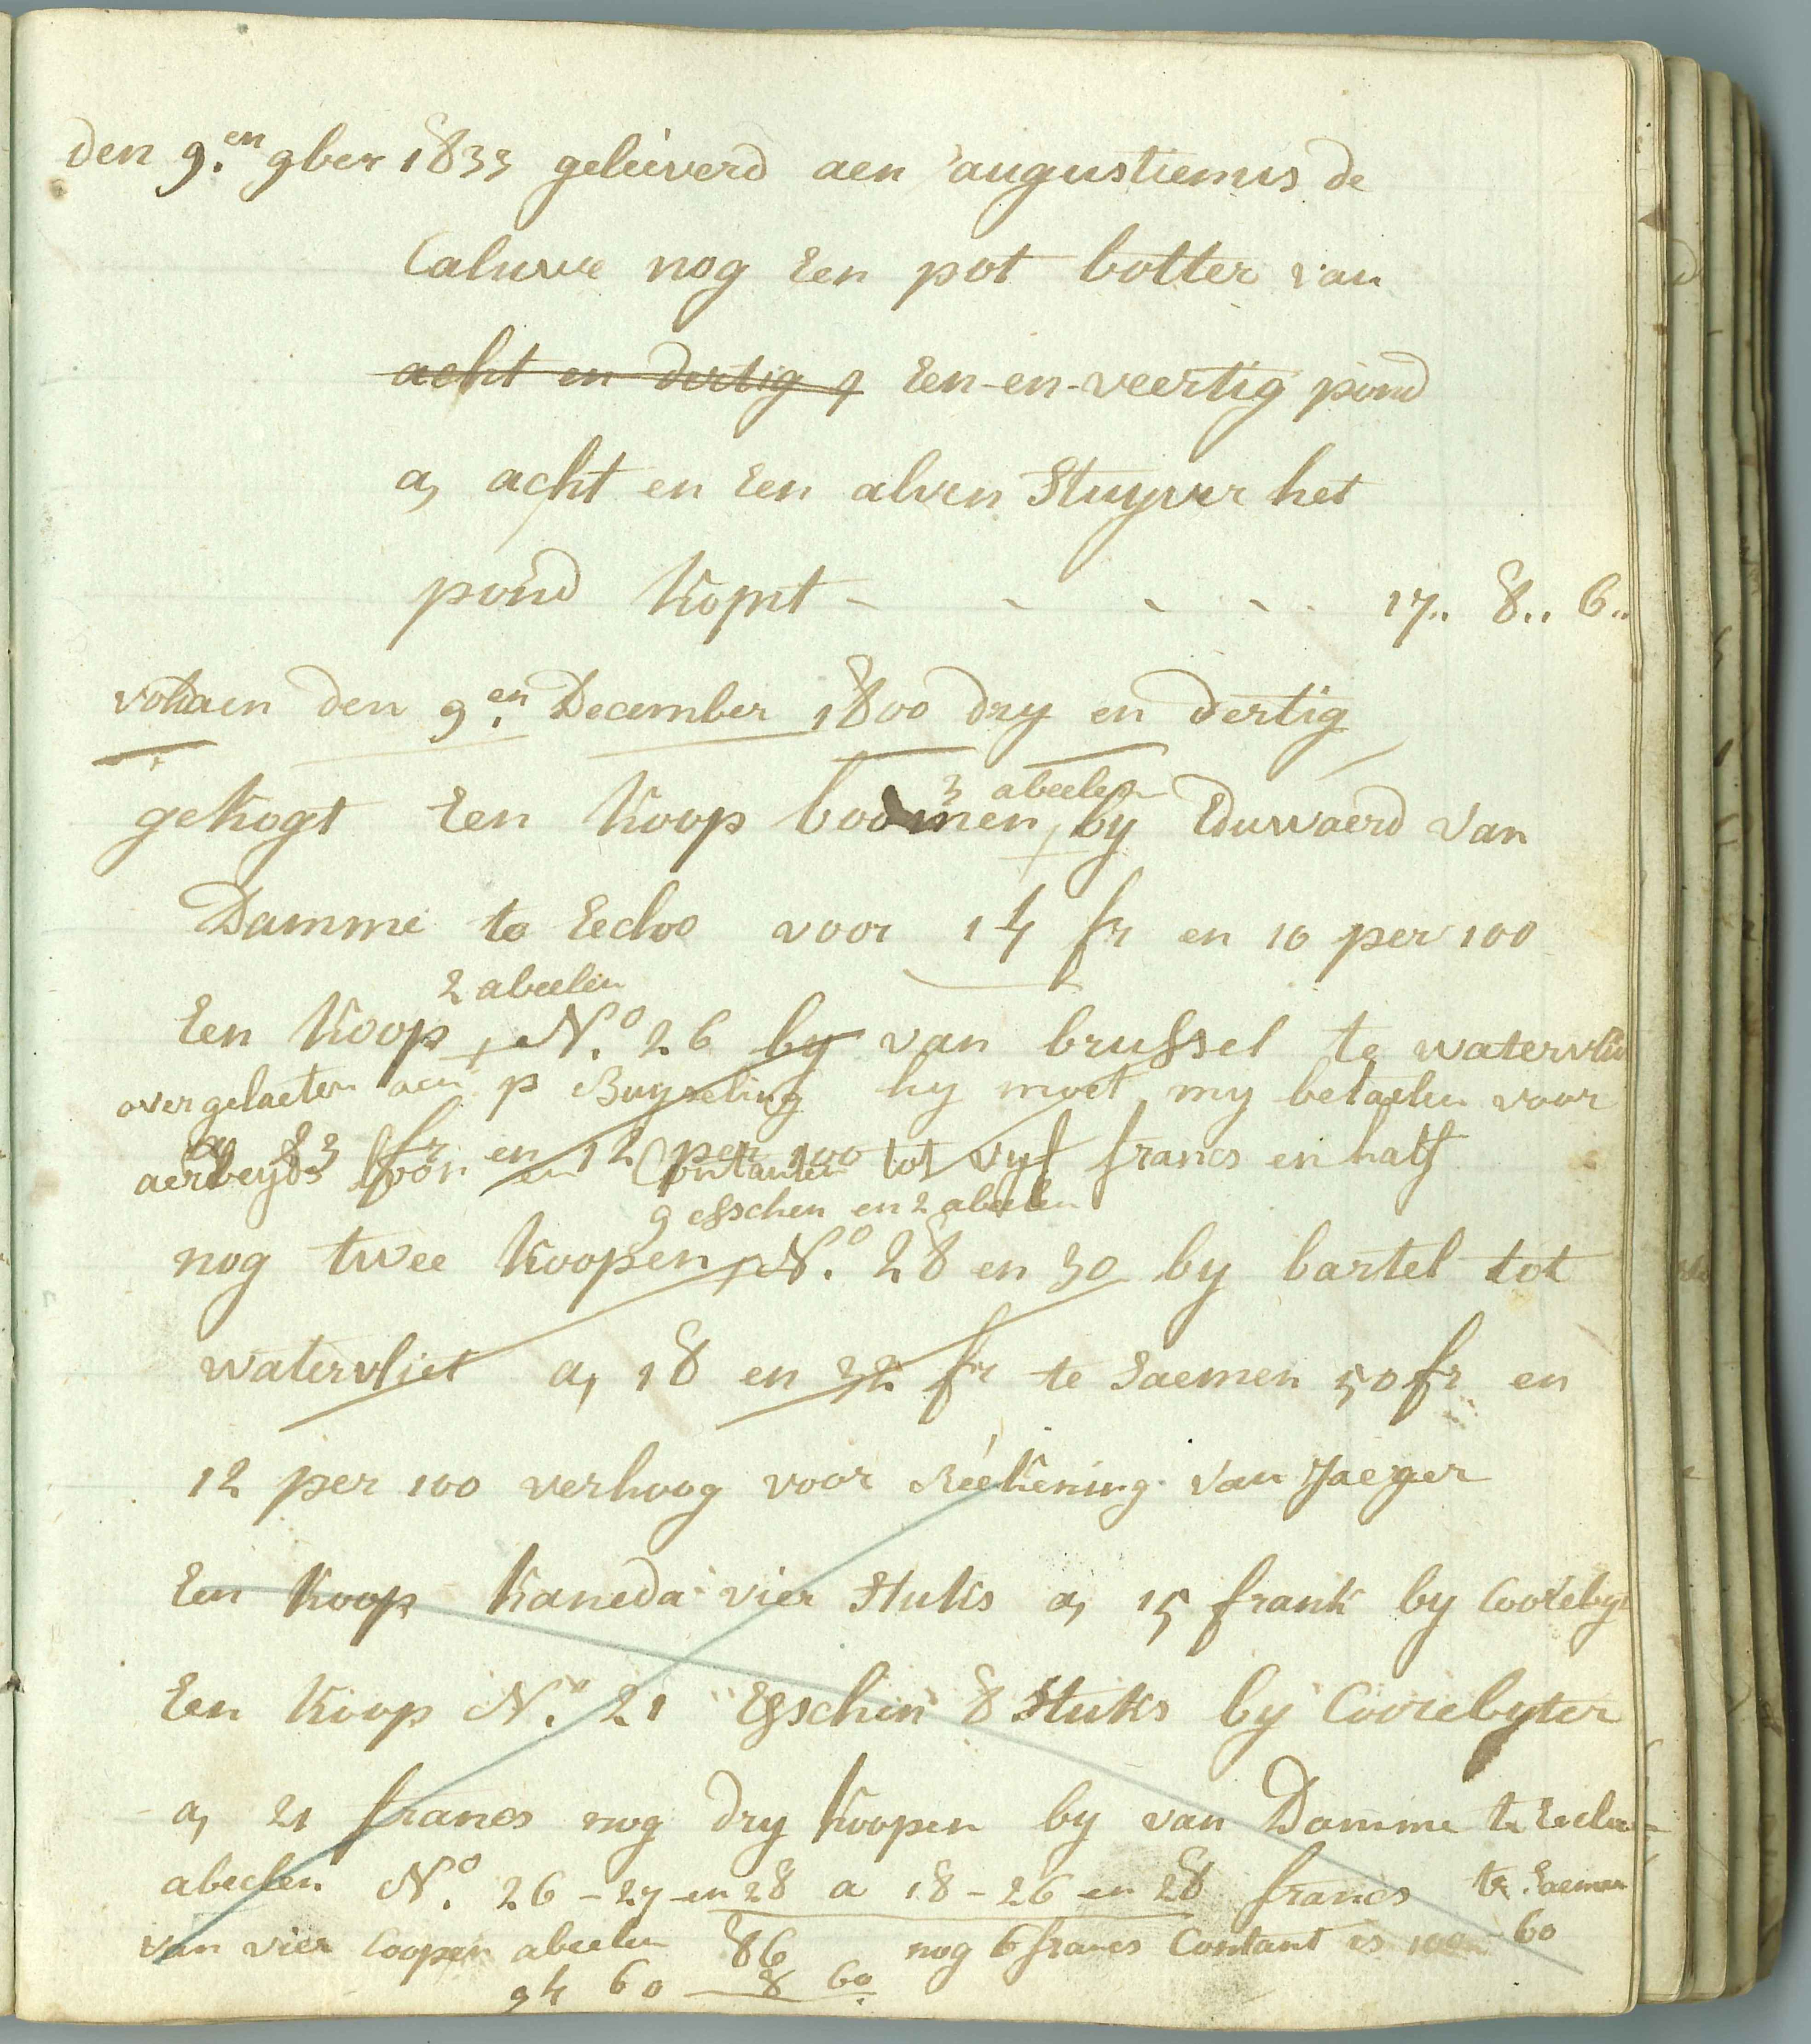 den 9.en 9ber 1833 geleverd aen augustienus de
Caluwe nog Een pot botter van
acht en dertig Een-en-veertig pond
a, acht en Een alven Stuyver het
pond Komt - - - - 17.. 8.. 6..
voldaen den 9.en December 1800 dry en dertig
3 abeelen
gekogt Een Koop boomen by Eduwaerd van
Damme te Eecloo voor 14 fr en 10 per 100
2 abeelen
Een Koop N.o 26 by van brussel te watervliet
overgelaeten aen p Buyseling hy moet my betaelen voor
a, 23 fr en 12 per 100
aerbeyds loon en Contanten tot vyf francs en half
9 esschen en 2 abeelen
nog twee Koopen N.o 28 en 30 by bartel tot
watervliet a, 18 en 32 fr te Saemen 50 fr en
12 per 100 verhoog voor Réekening van Jaeger
Een Koop Kaneda vier Stuks a, 15 frank by Coorebyt
Een Koop N.o 21 Esschen 8 Stuks by Coorebyter
a, 21 francs nog dry Koopen by van Damme te Eecloo
abeelen N.o 26 - 27 en 28 a 18 - 26 en 28 francs te Saemen
van vier Coopen abeelen 86 nog 6 francs Contant is 60
94 60 8 60